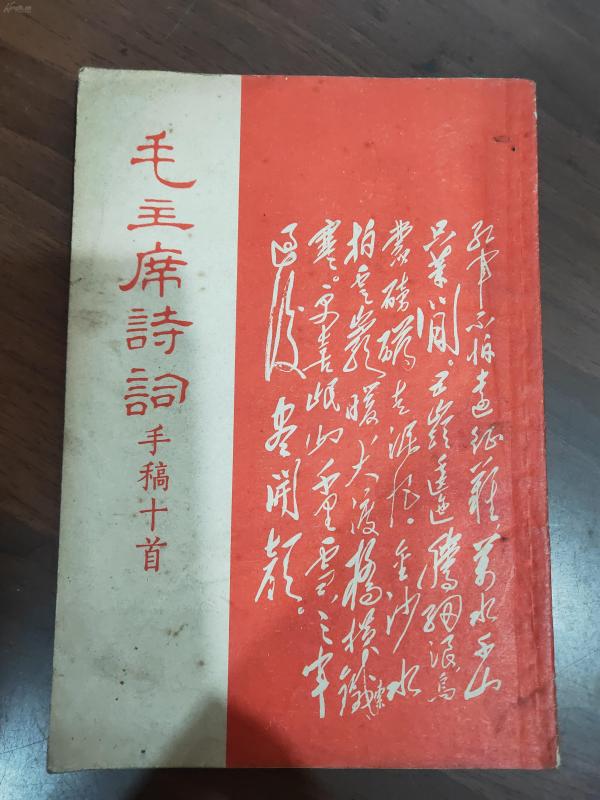 毛主席詩詞
手稿十首
紅軍不怕遠征難，萬水千山
只等閒。五嶺逶迤騰細浪，烏
蒙磅礴走泥丸。金沙水
拍雲崖暖，大渡橋橫鐵索
寒。更喜岷山千里雪，三軍
過後盡開顏。